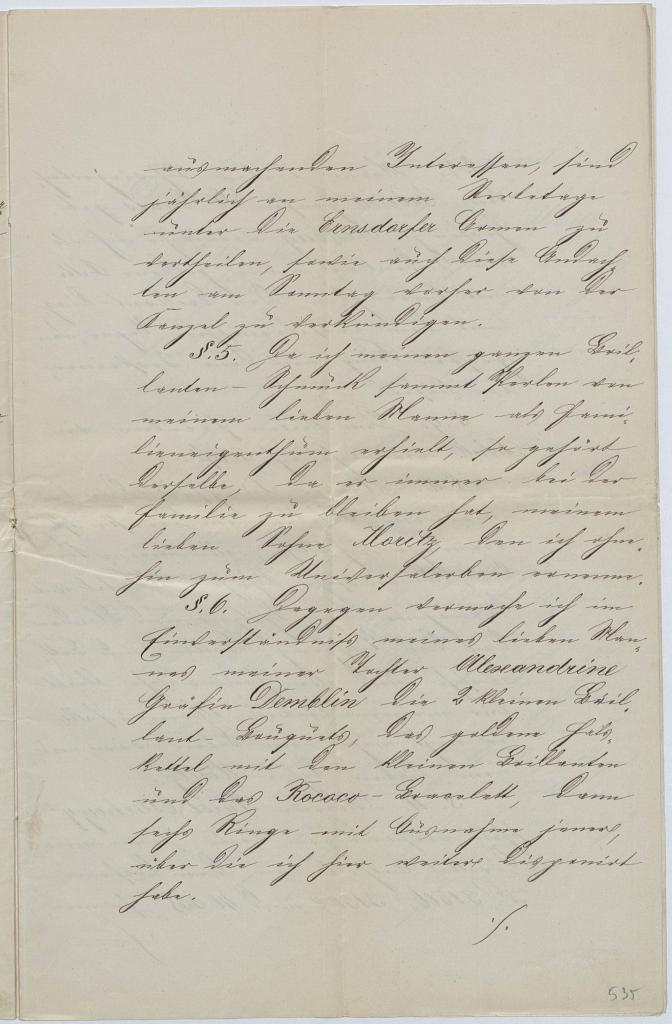 ausmachenden Interessen, sind
jährlich an meinem Sterbetage
unter die Ernsdorfer Armen zu
vertheilen, sowie auch diese Andach-
ten am Sonntag vorher von der
Kanzel zu verkündigen.
§. 5. Da ich meinen ganzen Bril-
lanten-Schmuck sammt Perlen von
meinem lieben Manne als Fami-
lieneigenthum erhielt, so gehört
derselbe, da er immer bei der
Familie zu bleiben hat, meinem
lieben Sohne Moritz, den ich ohne-
hin zum Universalerben ernenne.
§. 6. Dagegen vermache ich im
Einverständniss meines lieben Man-
nes meiner Tochter Alexandrine
Gräfin Demblin die 2 kleinen Bril-
lant-Bouquets, das goldene Hals-
kettel mit den kleinen Brillanten
und das Rococo-Bracelett, dann
sechs Ringe mit Ausnahme jener,
über die ich hier weiters disponirt
habe.
./.
535